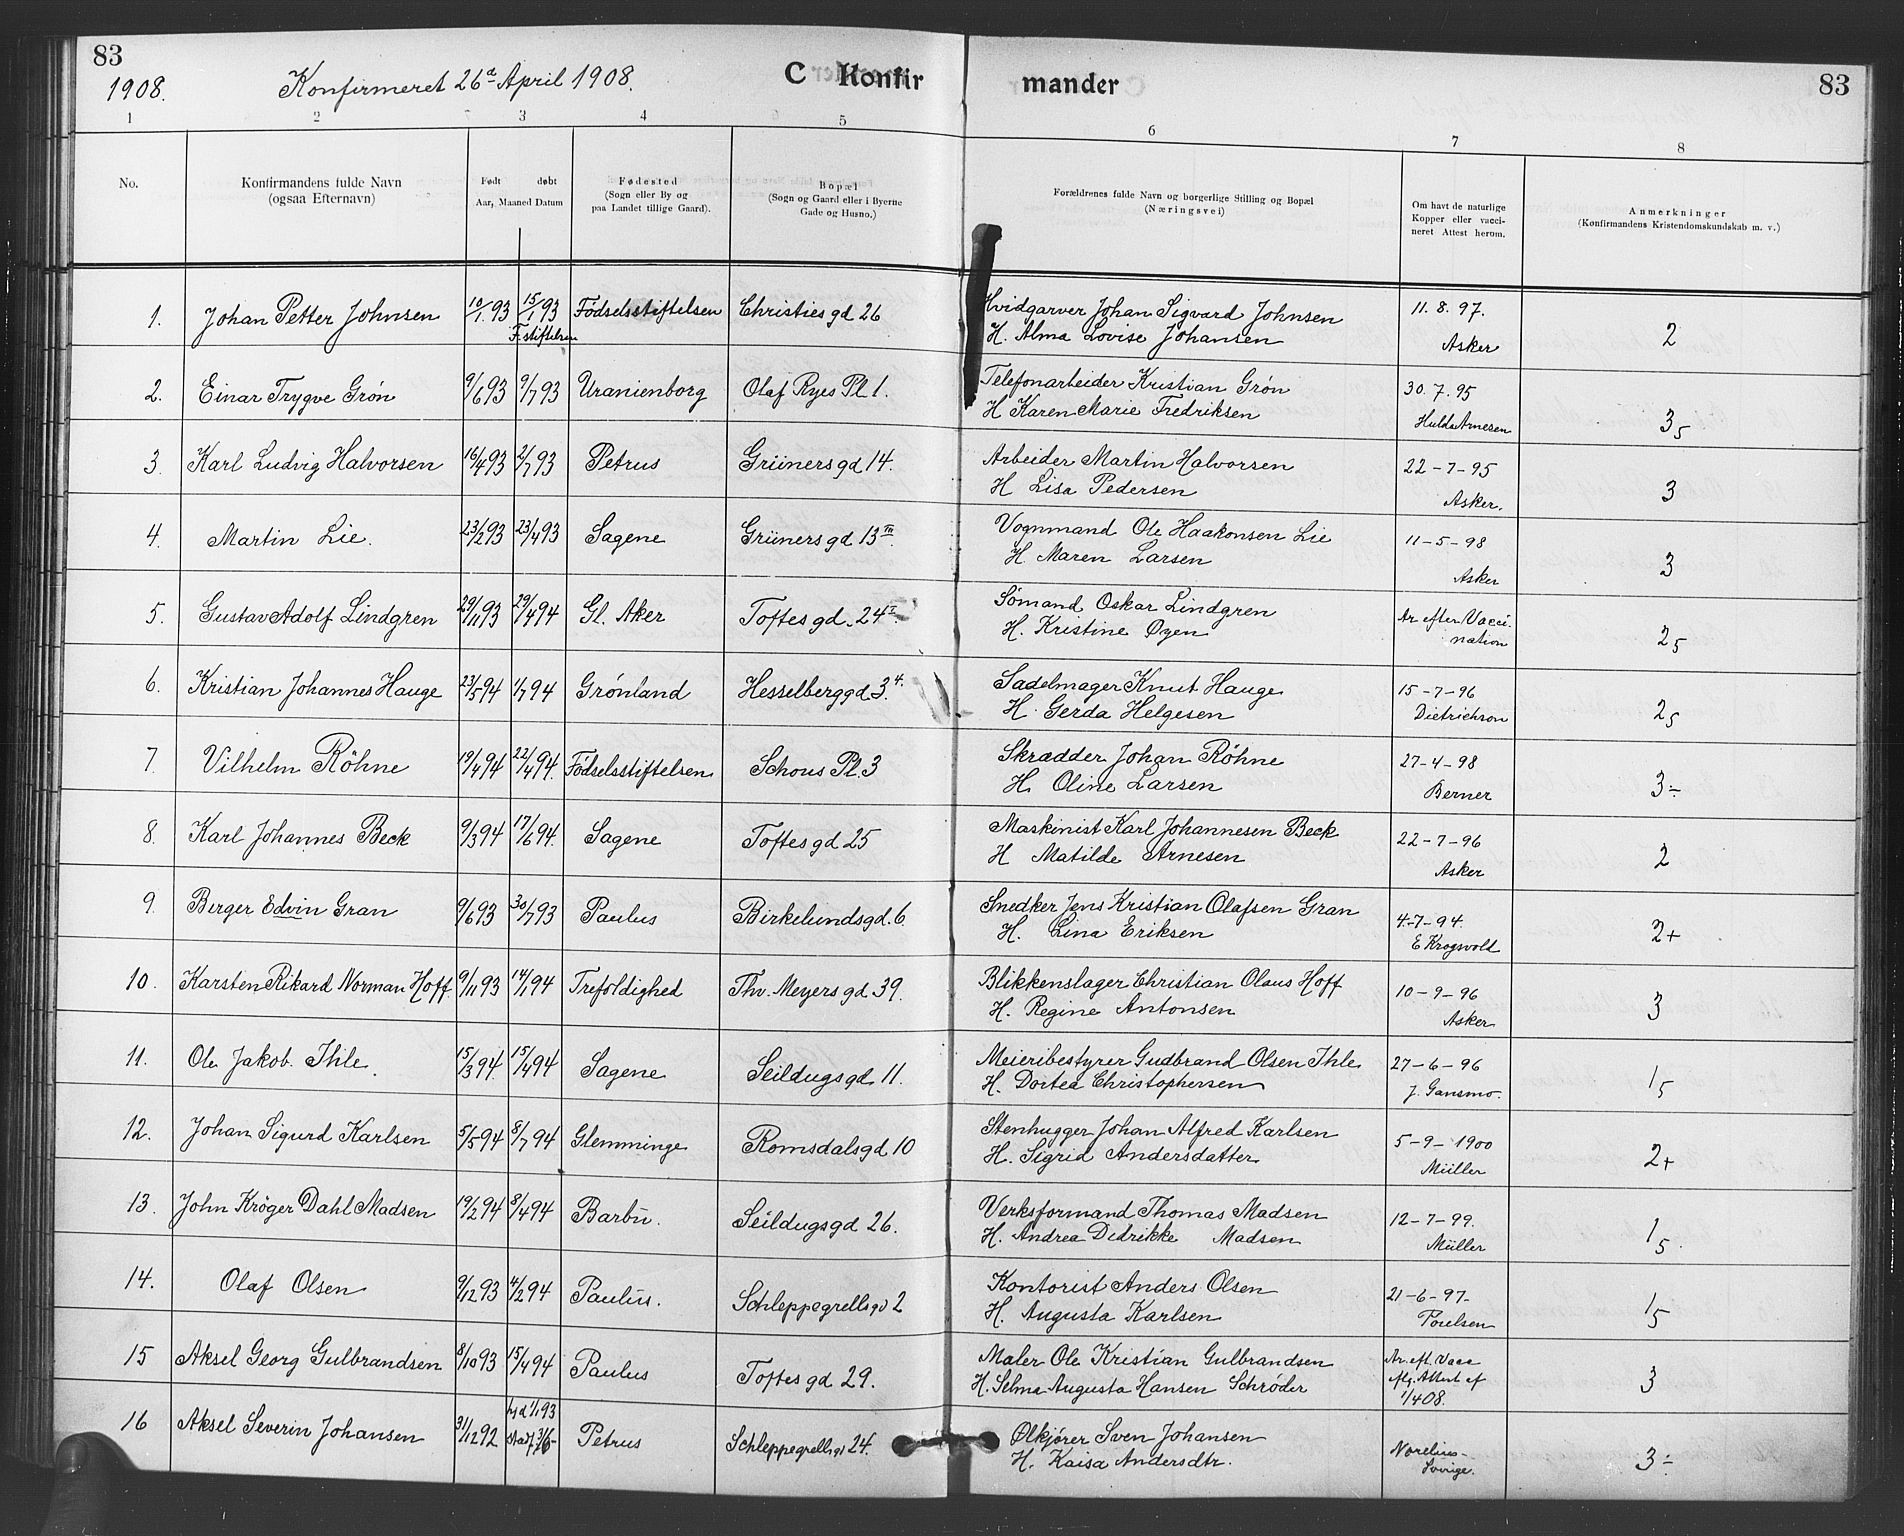 83
1908.
Konfirmeret 26de April 1908.
C Konfir
mander
83
1 2 3 4 5 6 7 8
No.
Konfirmandens fulde Navn
(ogsaa Efternavn)
Født døbt
Aar, Maaned Datum
Fødested
(Sogn eller By og
paa Landet tillige Gaard).
Bopæl
(Sogn og Gaard eller i Byerne
Gade og Husno.)
Forældrenes fulde Navn og borgerlige Stilling og Bopæl
(Næringsvei)
Om havt de naturlige
Kopper eller vacci-
neret Attest herom.
Anmerkninger
(Konfirmandens Kristendomskundskab m. v.)
1. Johan Petter Johnsen 10/1.93 15/1 93 Fødselsstiftelsen Christies gd 26 Hvidgarver Johan Sigvard Johnsen 11.8.97.
F. stiftelsen H. Alma Lovise Johansen Asker 2
2. Einar Trygve Grøn 9/6 93 9/7 93 Uranienborg Olaf Ryes Pl 1. Telefonarbeider Kristian Grøn 30.7.95
H Karen Marie Fredriksen Hulda Arnesen 3 5
3. Karl Ludvig Halvorsen 16/4 93 2/7 93 Petrus Grüners gd 14. Arbeider Martin Halvorsen 22-7-95
H Lisa Pedersen Asker. 3
4. Martin Lie. 23/2 93 23/4 93 Sagene Grüners gd 13 III. Vognmand Ole Haakonsen Lie 11-5-98
H. Maren Larsen Asker 3
5. Gustav Adolf Lindgren 29/11 93 29/4 94 Gl. Aker Toftes gd. 24 I Sømand Oskar Lindgren Ar efter Vacci-
H. Kristine Øyen nation 2 5
6. Kristian Johannes Hauge 23/5 94 1/7 94 Grønland Hesselberggd 3.4. Sadelmager Knut Hauge 15-7-96
H. Gerda Helgesen Dietrichson 2 5
7. Vilhelm Röhne 19/4 94 22/4 94. Fødselsstiftelsen Schous Pl. 3 Skrædder Johan Røhne 27-4-98
H. Oline Larsen Berner 3÷
8. Karl Johannes Beck 9/3 94 17/6 94. Sagene Toftes gd 25 Maskinist Karl Johannesen Beck 22-7-96
H Matilde Arnesen Asker 2
9. Berger Edvin Gran 9/6 93 30/7 93 Paulus Birkelundsgd. 6 Snedker Jens Kristian Olafsen Gran 4-7-94.
H. Lina Eriksen E Krogvold 2+
10. Karsten Rikard Norman Hoff 9/11 93 14/1 94 Trefoldighed Thv. Meyers gd 39. Blikkenslager Christian Olaus Hoff 10-9-96
H. Regine Antonsen Asker 3
11. Ole Jakob Ihle. 15/3 94. 15/4 94 Sagene Seildugsgd 11. Meieribestyrer Gudbrand Olsen Ihle 27-6-96
H. Dortea Christophersen J. Gansmo. 1 5
12. Johan Sigurd Karlsen 5/5 94 8/7 94 Glemminge Romsdalsgd 10 Stenhugger Johan Alfred Karlsen 5-9-1900
H. Sigrid Andersdatter Müller 2+
13. John Kröger Dahl Madsen 19/2 94 8/4 94 Barbu. Seildugsgd 26. Verksformand Thomas Madsen 12-7-99.
H. Andrea Didrikke Madsen Müller 1 5.
14. Olaf Olsen 9/12 93 4/2 94 Paulus. Schleppegrellsgd 2 Kontorist Anders Olsen 21-6-97.
H. Augusta Karlsen Poulsen 1 5
15 Aksel Georg Gulbrandsen 8/10 93 15/4 94 Paulus Toftes gd 29. Maler Ole Kristian Gulbrandsen Ar. eft. Vacc
H. Selma Augusta Hansen Schrøder eflg. Attest af
1/4 08. 3
16 Aksel Severin Johansen 31/12 92 hjd 1/1 93 Petrus Schleppegrellsgd 24. Ølkjører Sven Johansen
H. Kaisa Andersdtr. Norelius-
Sverige. 3÷